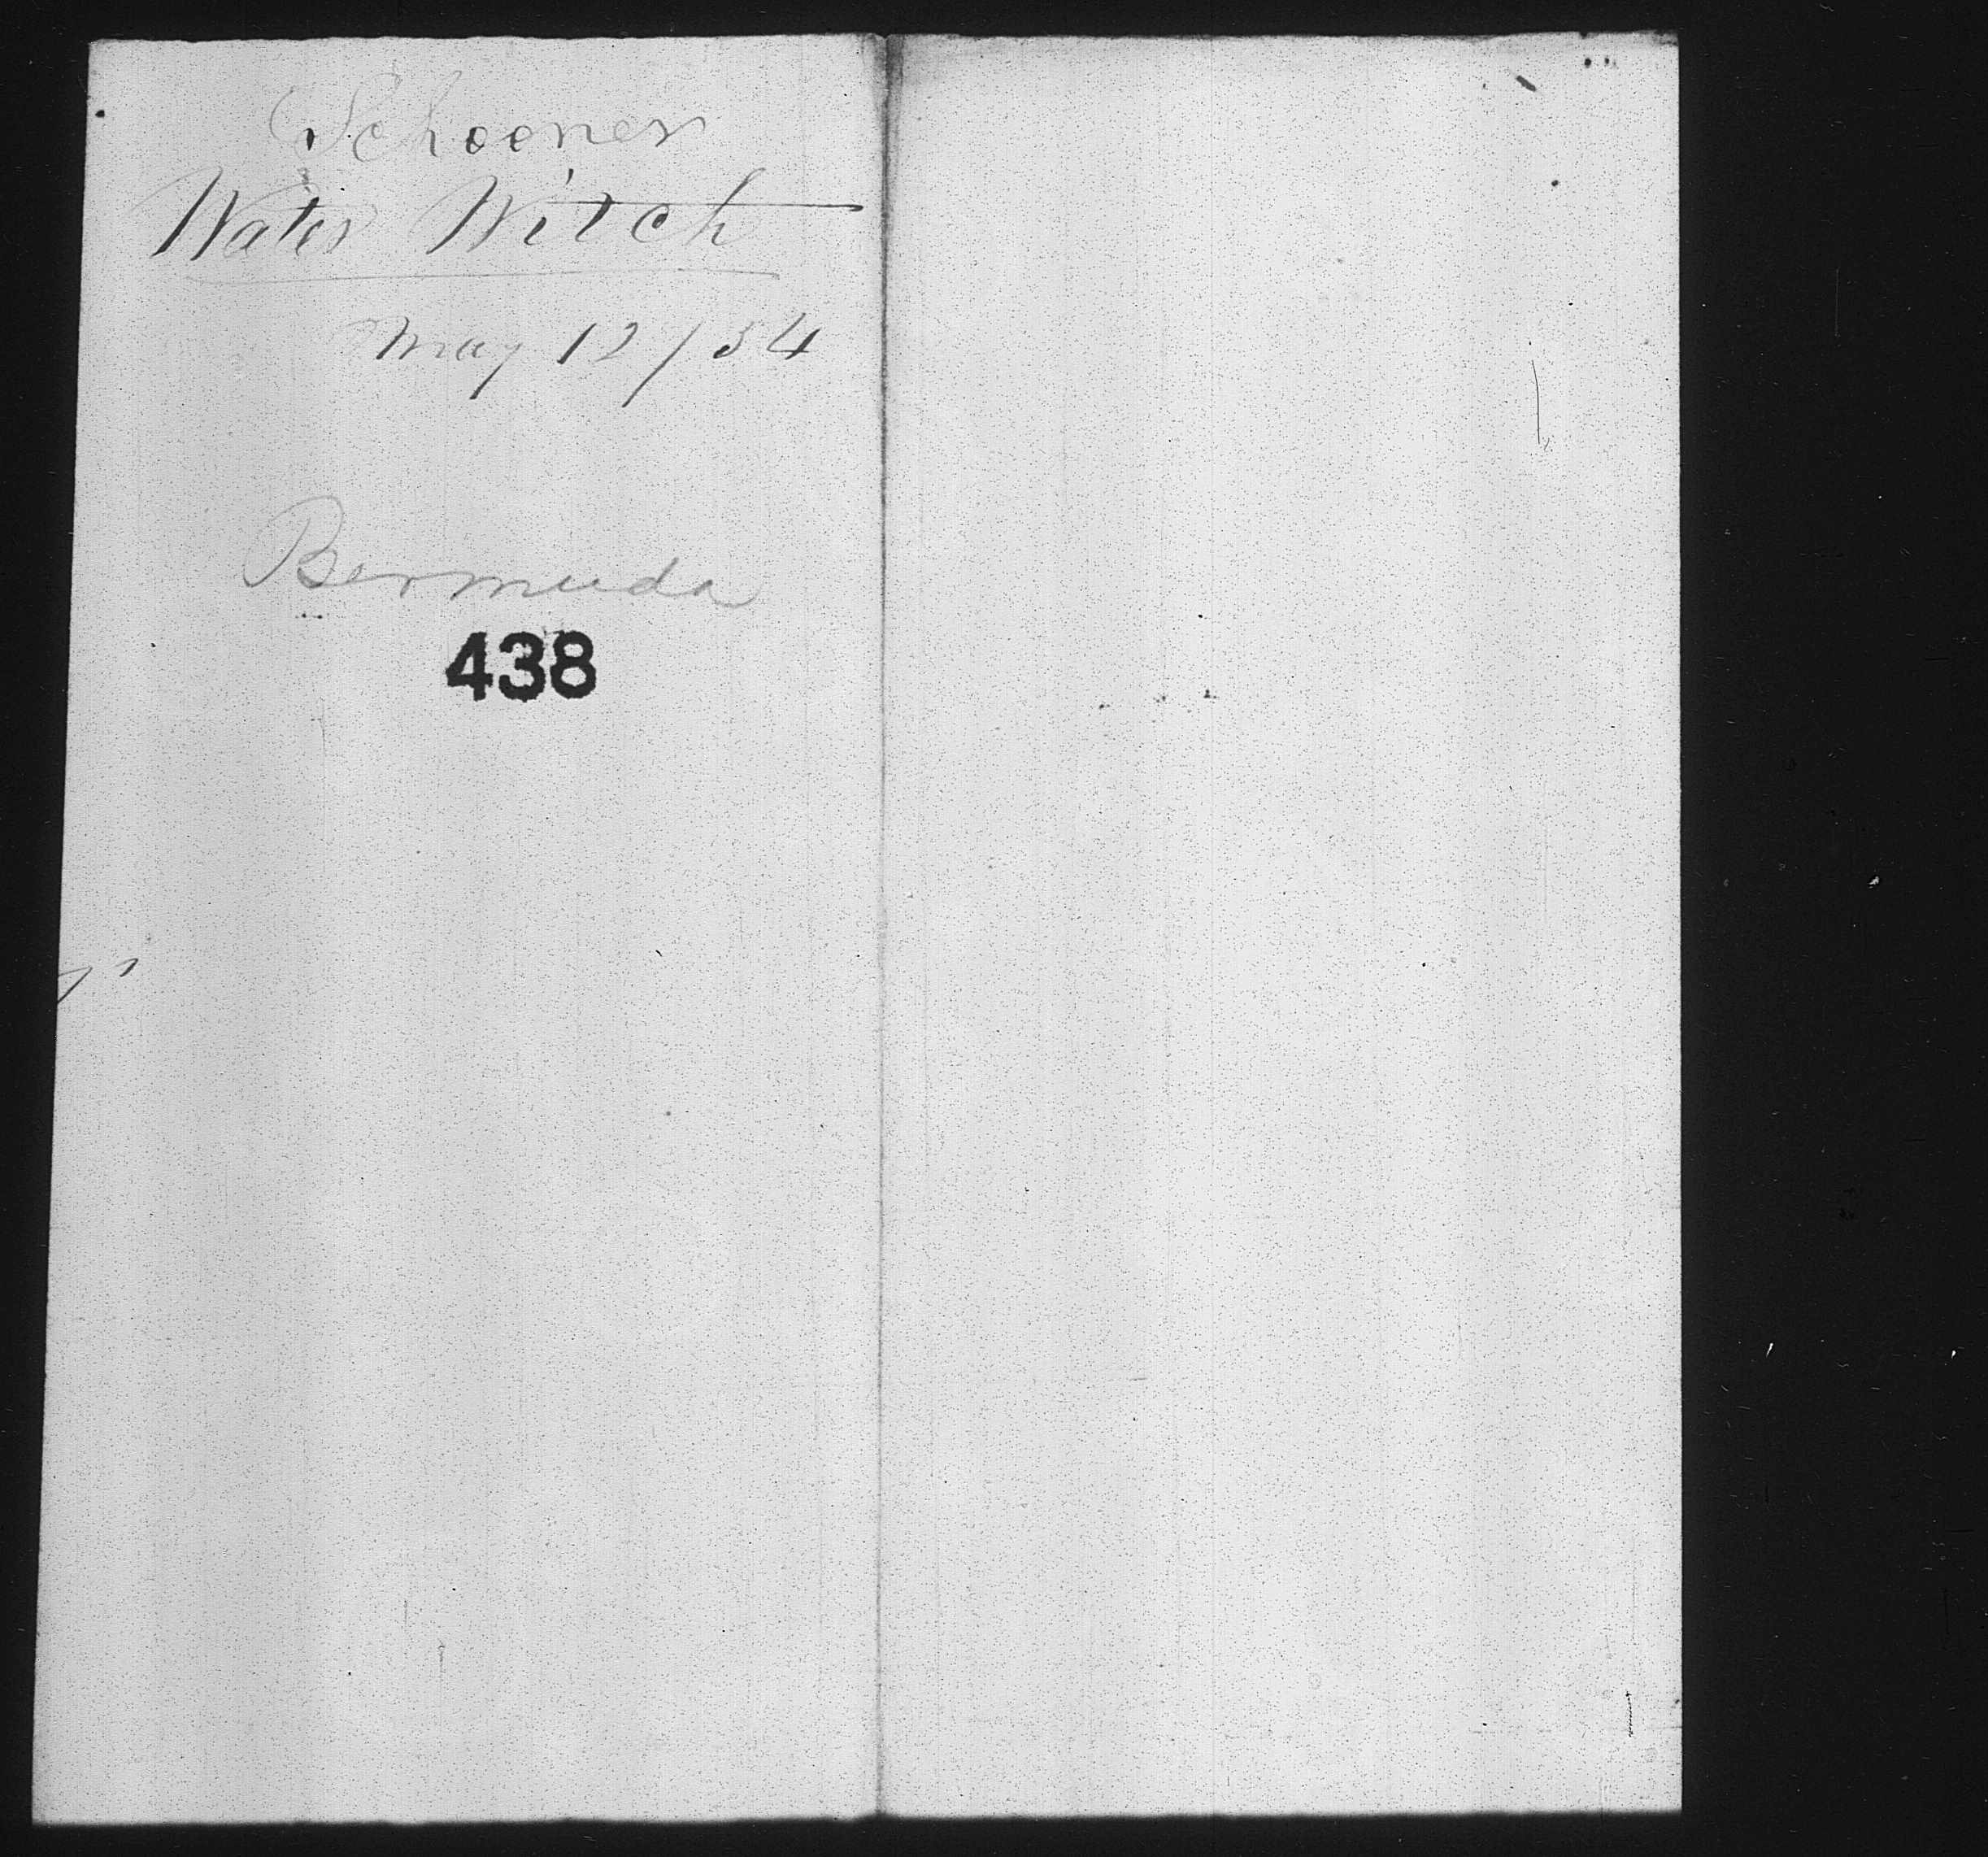 Schooner
Water Witch
May 12/54
Bermuda
438